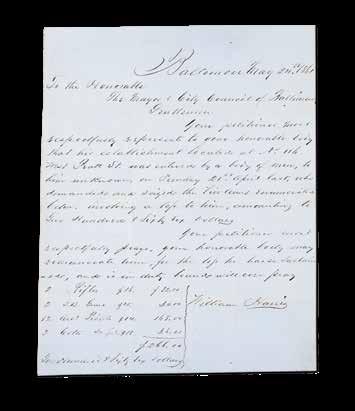 Baltimore May 20th 1861
To the Honorable
The Mayor & City Council of Baltimore
Gentlemen
Your petitioner most
respectfully represents to your honorable body
that his establishment located at No. 116
West Pratt St. was entered by a body of men, to
him unknown, on Sunday 21st April last, who
demanded and seized the various enumerated
below, involving a loss to him, amounting to
Two Hundred & Sixty six dollars
Your petitioner most
respectfully prays, your honorable body may
remunerate him, for the loss he has sustain
and, as in duty bound will ever pray
2 Rifles
2
12
3 Colts
$266.00
Two Hundred & Sixty six dollars
William Harris